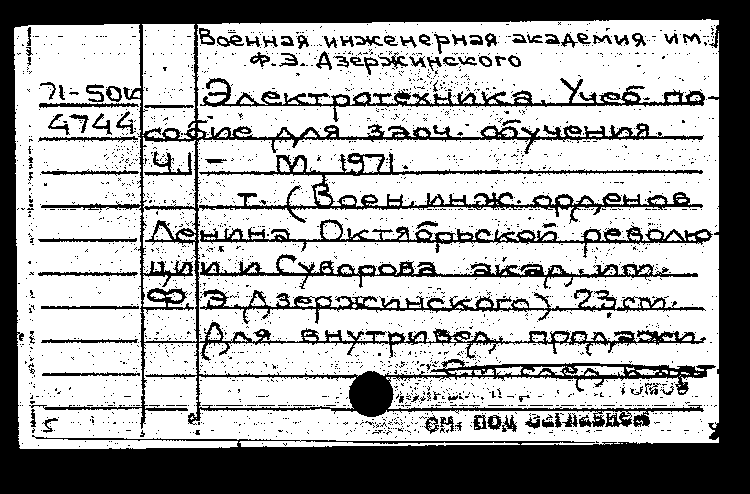 Военная инженерная академия им.
Ф.Э. Дзержинского
71-50к
Электротехника. Учеб. по-
4744
собие для заоч. обучения.
Ч.1 – М., 1971.
т. (Воен. инж. орденов
Ленина, Октябрьской револю-
ции и Суворова акад. им.
Ф.Э. Дзержинского). 23 см.
Для внутривед. продажи.
См. след. карт.
томов
см. под заглавием
5